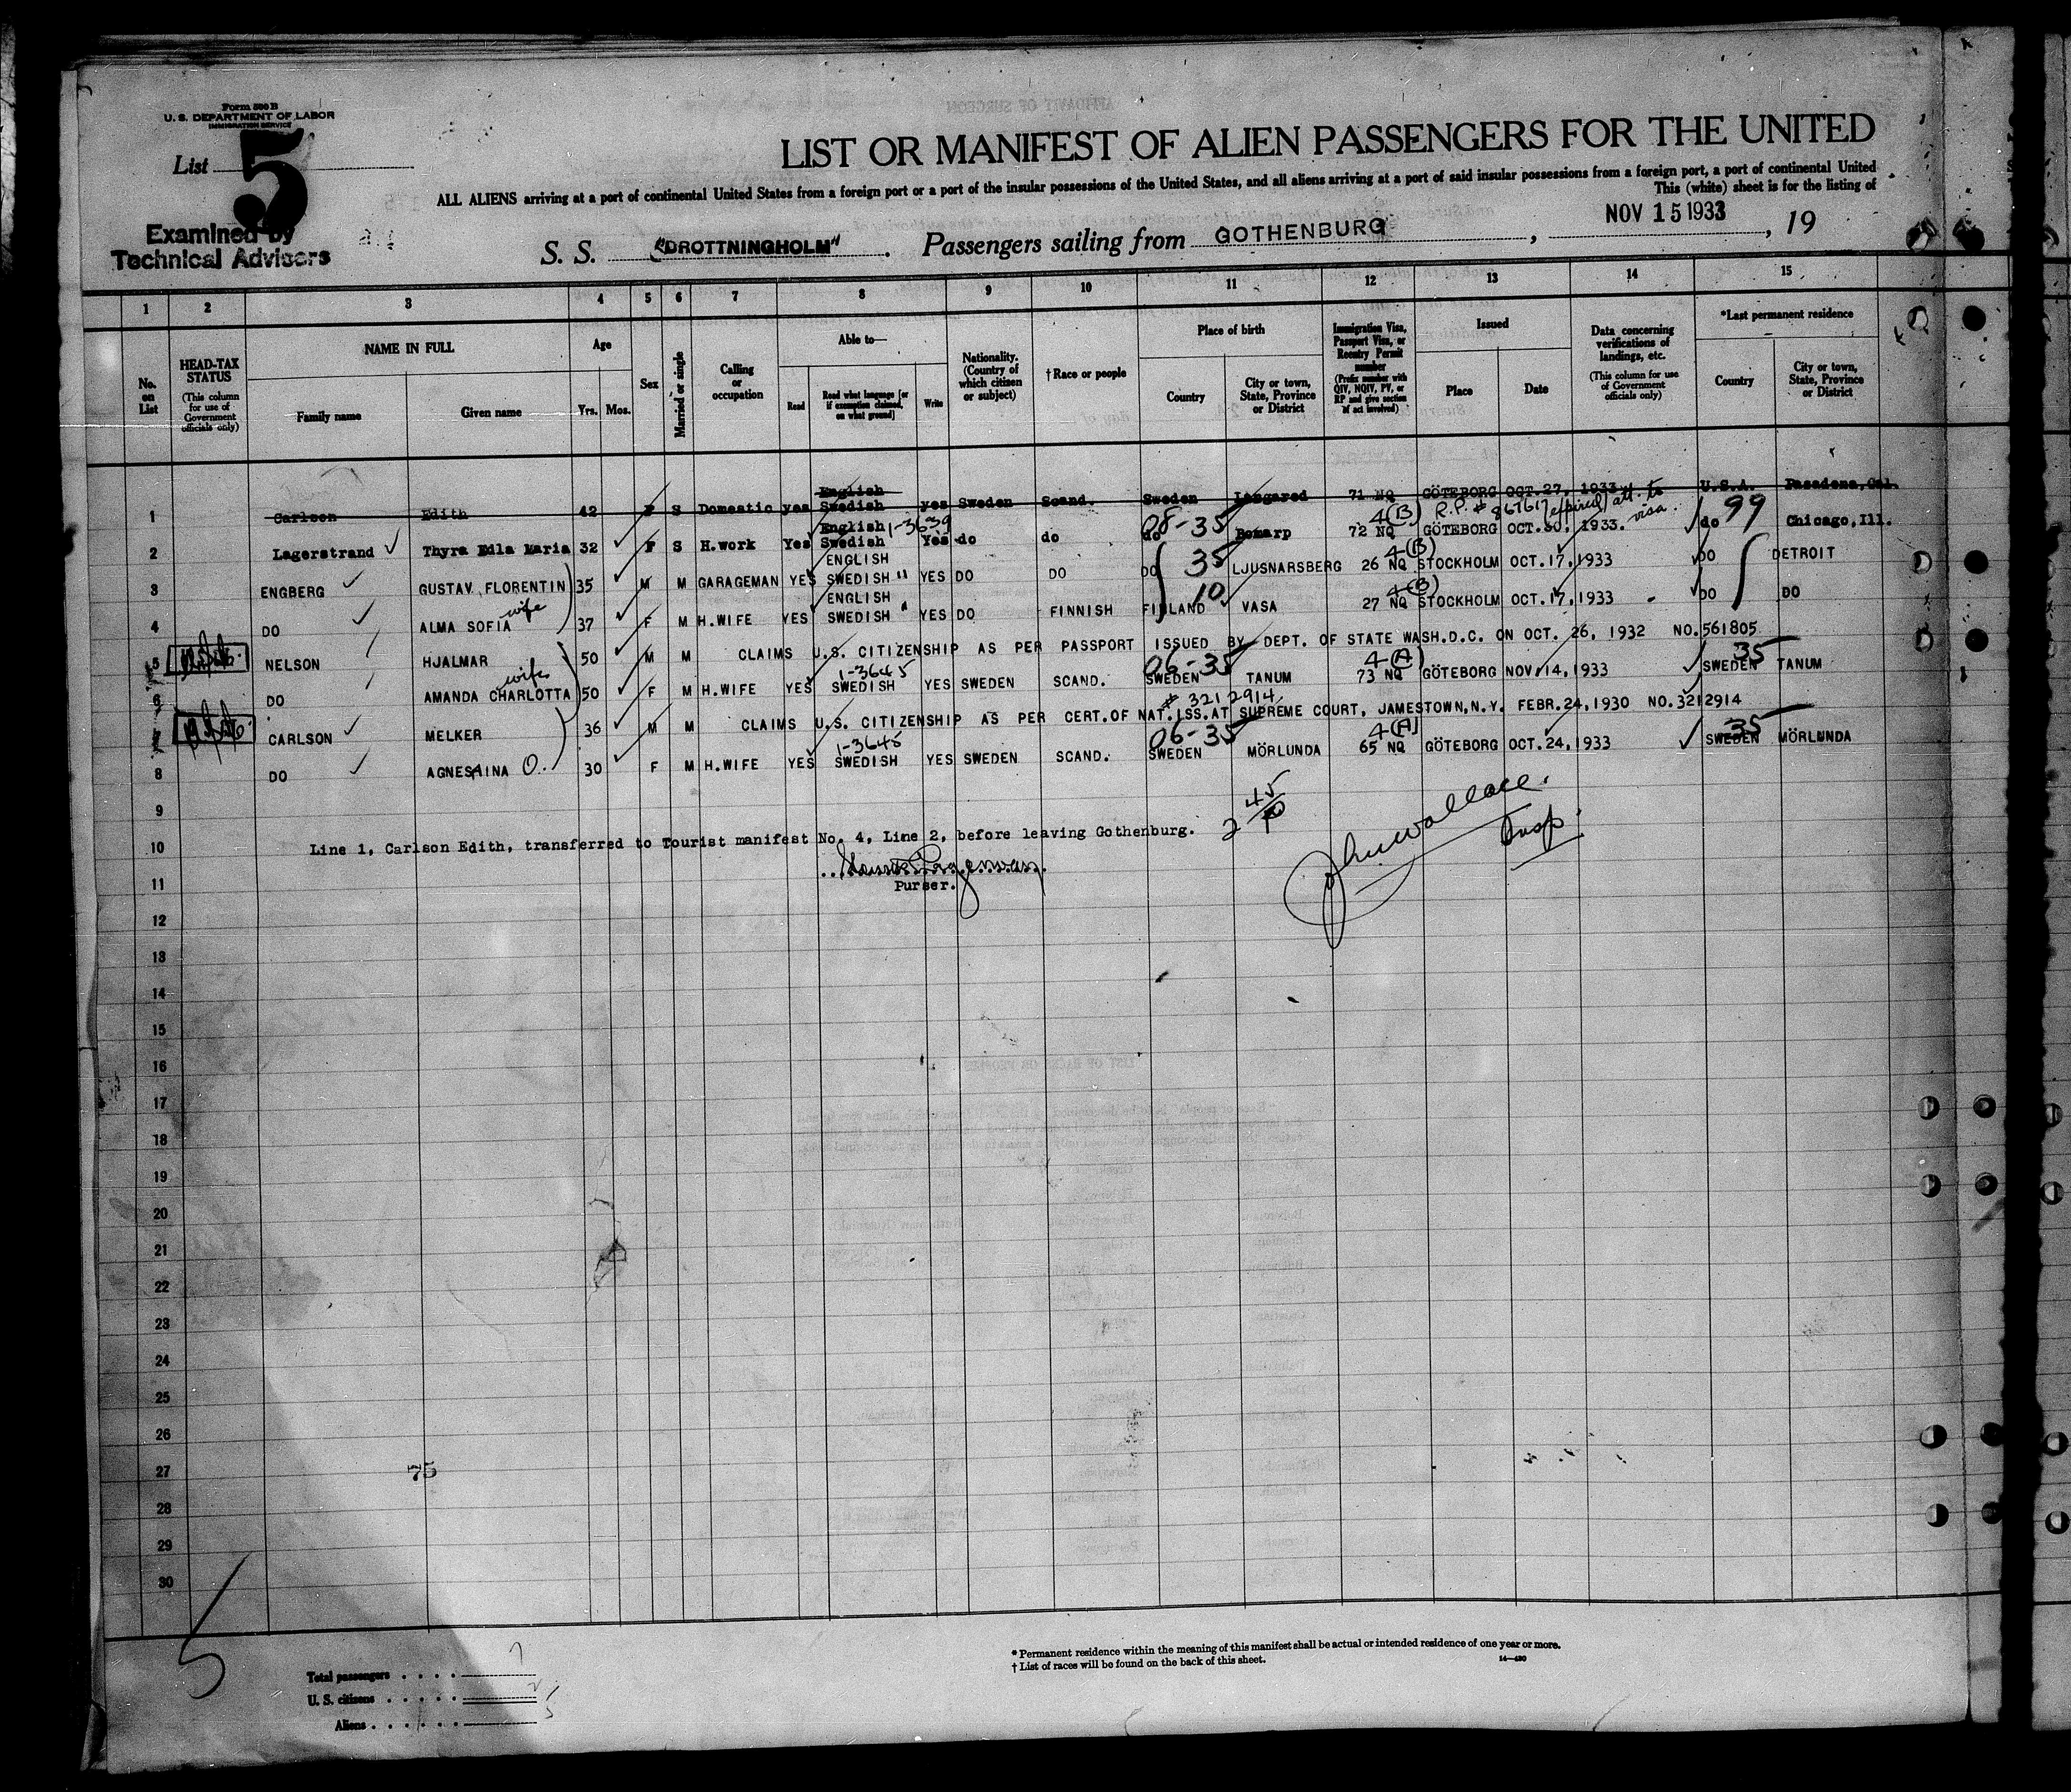 Form 500 B
U. S. DEPARTMENT OF LABOR
IMMIGRATION SERVICE
List 5
Examined by
Technical Advisers
LIST OR MANIFEST OF ALIEN PASSENGERS FOR THE UNITED
ALL ALIENS arriving at a port of continental United States from a foreign port or a port of the insular possessions of the United States, and all aliens arriving at a port of said insular possessions from a foreign port, a port of continental United
This (white) sheet is for the listing of
S. S. "DROTTNINGHOLM". Passengers sailing from GOTHENBURG, NOV 15 1933, 19
1 2 3 4 5 6 7 8 9 10 11 12 13 14 15
No. on List
HEAD-TAX STATUS (This column for use of Government officials only)
NAME IN FULL
Family name Given name
Age
Yrs. Mos.
Sex
Married or single
Calling or occupation
Able to—
Read Read what language [or if exemption claimed, on what ground] Write
Nationality. (Country of which citizen or subject)
† Race or people
Place of birth
Country City or town, State, Province or District
Immigration Visa, Passport Visa, or Reentry Permit number (Prefix number with QIV, NQIV, PV, or RP and give section if act involved)
Issued
Place Date
Data concerning verifications of landings, etc. (This column for use of Government officials only)
*Last permanent residence
Country City or town, State, Province or District
1 Carlson Edith 42 F S Domestic yes English Swedish yes Sweden Scand. Sweden Langared 71 NQ GÖTEBORG OCT.27, 1933 U.S.A. Pasadena, Cal.
4(B) R.P. # 867617 expired, att. to visa.
2 Lagerstrand Thyra Edla Maria 32 F S H.work Yes English Swedish 1-3639 Yes do do do 08-35 Bomarp 72 NQ GÖTEBORG OCT.30, 1933. do 99 Chicago, Ill.
3 ENGBERG GUSTAV FLORENTIN 35 M M GARAGEMAN YES ENGLISH SWEDISH " YES DO DO DO 35 LJUSNARSBERG 4(B) 26 NQ STOCKHOLM OCT.17,1933 DO DETROIT
4 DO ALMA SOFIA wife 37 F M H.WIFE YES ENGLISH SWEDISH " YES DO FINNISH FINLAND 10 VASA 4(B) 27 NQ STOCKHOLM OCT.17,1933 DO DO
5 NELSON HJALMAR 50 M M CLAIMS U.S. CITIZENSHIP AS PER PASSPORT ISSUED BY DEPT. OF STATE WASH.D.C. ON OCT. 26, 1932 NO.561805
6 DO AMANDA CHARLOTTA wife 50 F M H.WIFE YES 1-3645 SWEDISH YES SWEDEN SCAND. 06-35 SWEDEN TANUM 4(A) 73 NQ GÖTEBORG NOV.14,1933 SWEDEN 35 TANUM
# 3212914
7 CARLSON MELKER 36 M M CLAIMS U.S. CITIZENSHIP AS PER CERT.OF NAT.ISS.AT SUPREME COURT, JAMESTOWN,N.Y. FEBR.24,1930 NO.3212914
8 DO AGNES AINA O. 30 F M H.WIFE YES 1-3645 SWEDISH YES SWEDEN SCAND. 06-35 SWEDEN MÖRLUNDA 4(A) 65 NQ GÖTEBORG OCT.24,1933 SWEDEN 35 MÖRLUNDA
9
10 Line 1, Carlson Edith, transferred to Tourist manifest No. 4, Line 2, before leaving Gothenburg.
John Wallace.
Insp.
11 Purser.
12
13
14
15
16
17
18
19
20
21
22
23
24
25
26
27 75
28
29
30
5
Total passengers 7
U. S. citizens 2
Aliens 5
* Permanent residence within the meaning of this manifest shall be actual or intended residence of one year or more.
† List of races will be found on the back of this sheet.
14—480